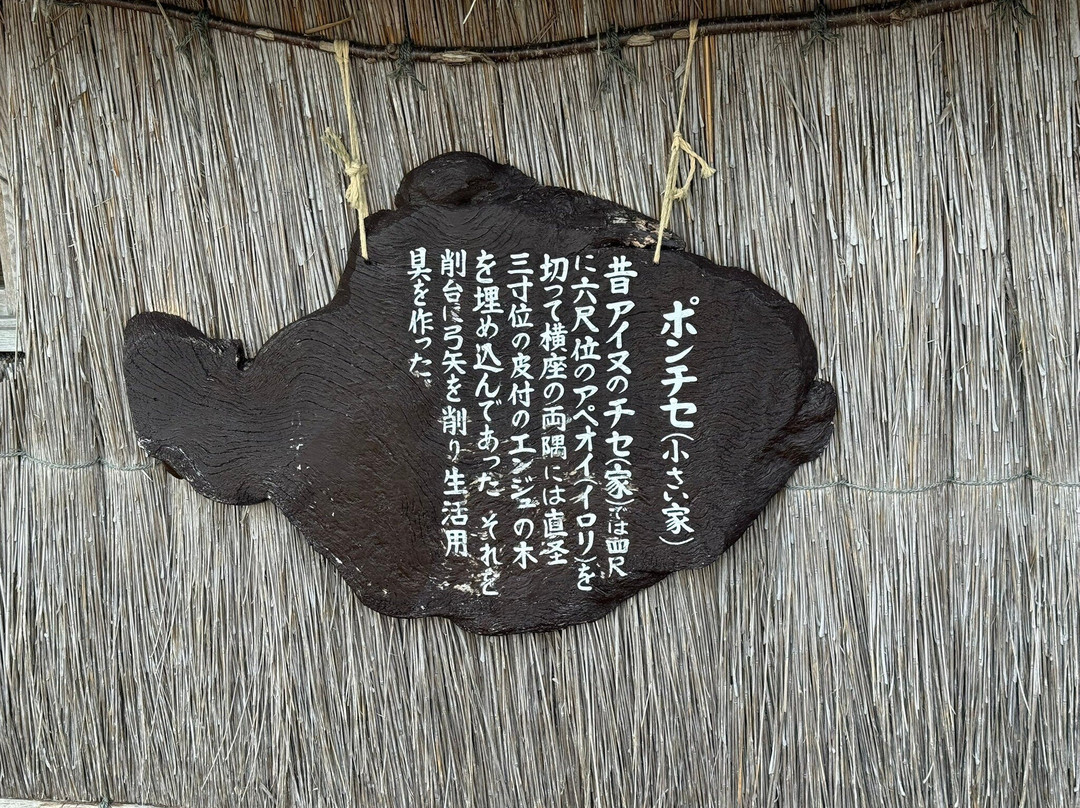 ポンチセ(小さい家)
昔アイヌのチセ(家)では四尺
に六尺位のアペオイ(イロリ)を
切って横座の両隅には直径
三寸位の皮付のエンジュの木
を埋め込んであった それを
削台に弓矢を削り生活用
具を作った